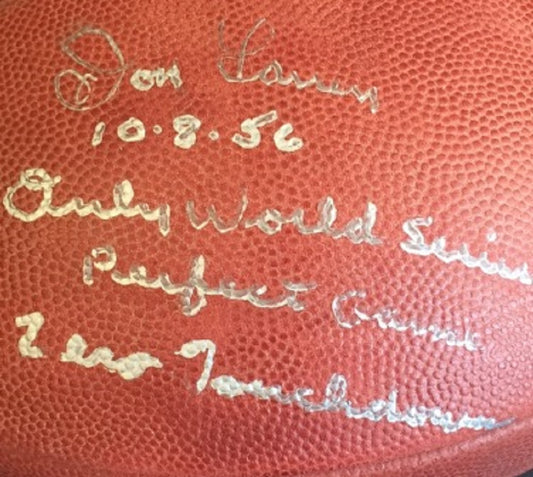 Don Larsen
10.8.56
Only World Series
Perfect Game
Zero Touchdowns